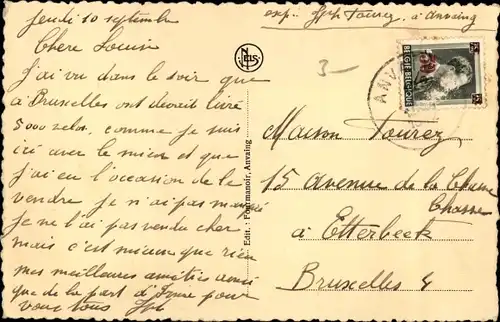 Jeudi 10 septembre
Chere Louise
J'ai vu dans le soir que
à Bruxelles ont devrait livré
5000 velos, comme je suis
ici avec le mien et que
j'ai eu l'occasion de le
vendre je n'ai pas manqué
je ne l'ai pas vendu cher
mais c'est mieux que rien
mes meilleures amitiés ainsi
que de la part d' pour
vous tous
NELS
Edit. : Fourmanoir, Anvaing
exp: Tourez à Anvaing
3-
ANV
BELGIE BELGIQUE
Maison Tourez
15 avenue de la Chasse
Chasse
à Etterbeek
Bruxelles 4